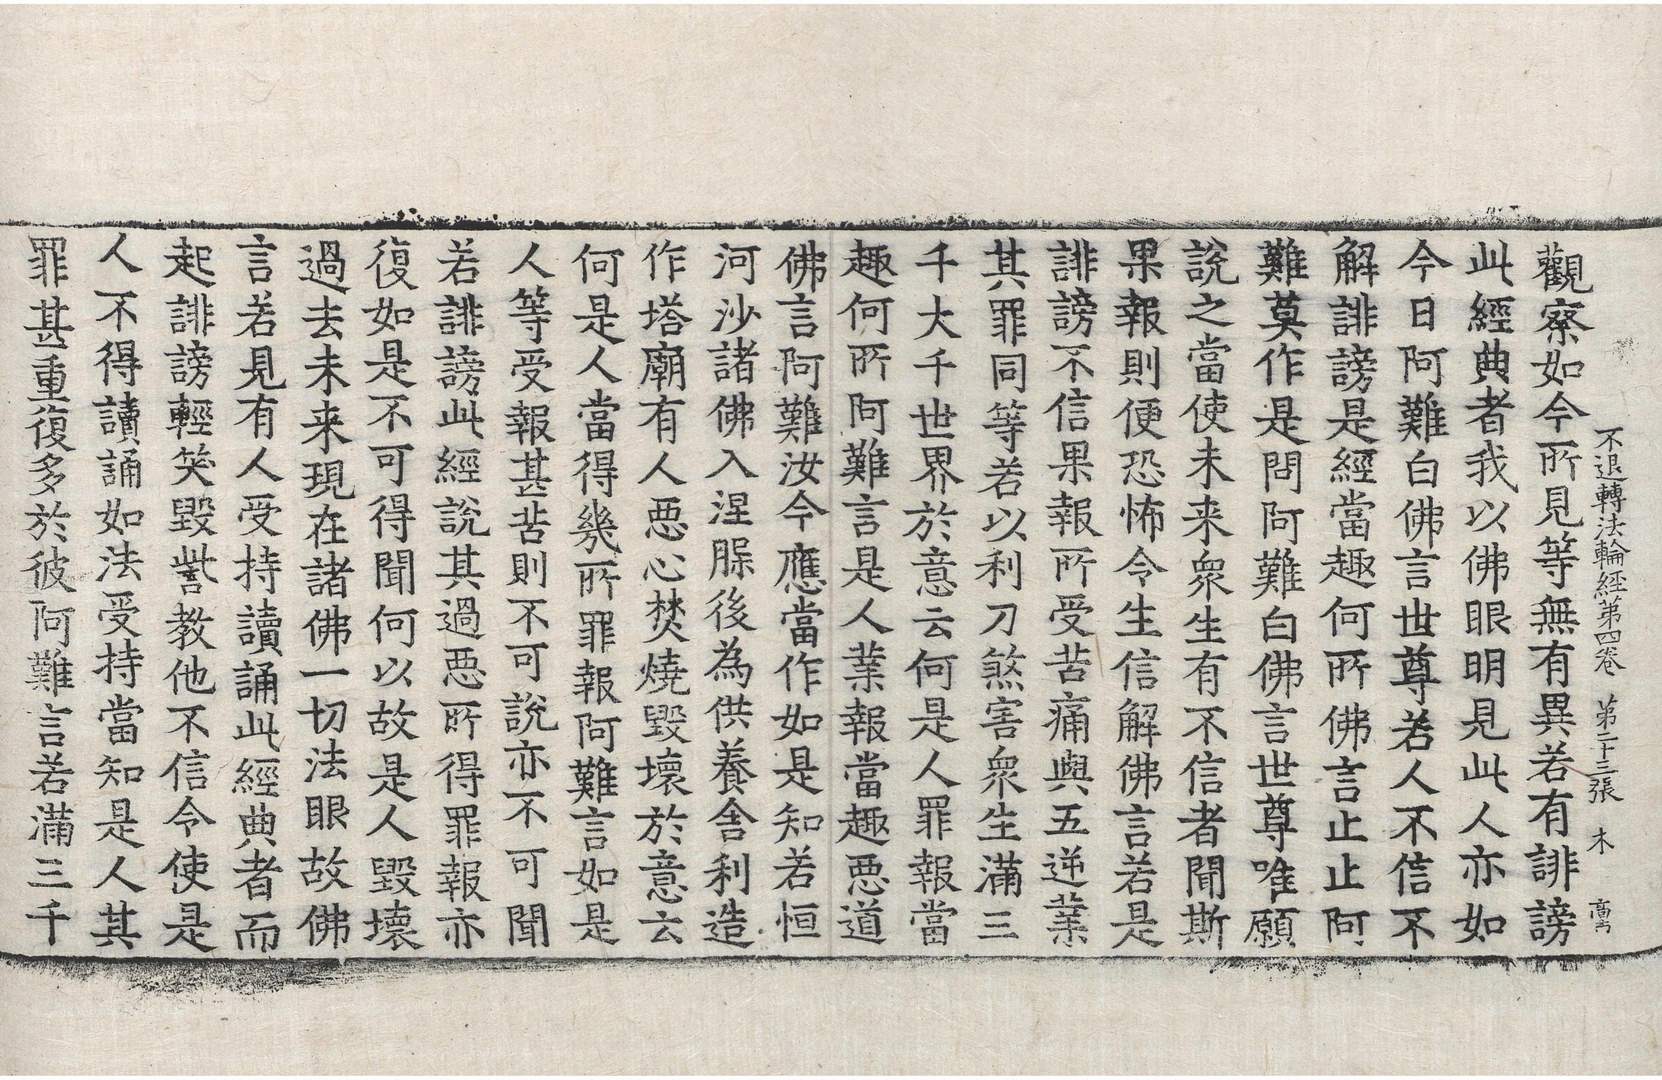 不退轉法輪經第四卷　第二十三張　木
觀察如今所見等無有異若有誹謗
此經典者我以佛眼明見此人亦如
今日阿難白佛言世尊若人不信不
解誹謗是經當趣何所佛言止止阿
難莫作是問阿難白佛言世尊唯願
說之當使未来衆生有不信者聞斯
果報則便恐怖令生信解佛言若是
誹謗不信果報所受苦痛與五逆業
其罪同等若以利刀煞害衆生滿三
千大千世界於意云何是人罪報當
趣何所阿難言是人業報當趣惡道
佛言阿難汝今應當作如是知若恒
河沙諸佛入涅脲後為供養舍利造
作塔廟有人惡心焚燒毀壞於意云
何是人當得幾所罪報阿難言如是
人等受報甚苦則不可說亦不可聞
若誹謗此經說其過惡所得罪報亦
復如是不可得聞何以故是人毀壞
過去未来現在諸佛一切法眼故佛
言若見有人受持讀誦此經典者而
起誹謗輕笑毀訾教他不信令使是
人不得讀誦如法受持當知是人其
罪甚重復多於彼阿難言若滿三千